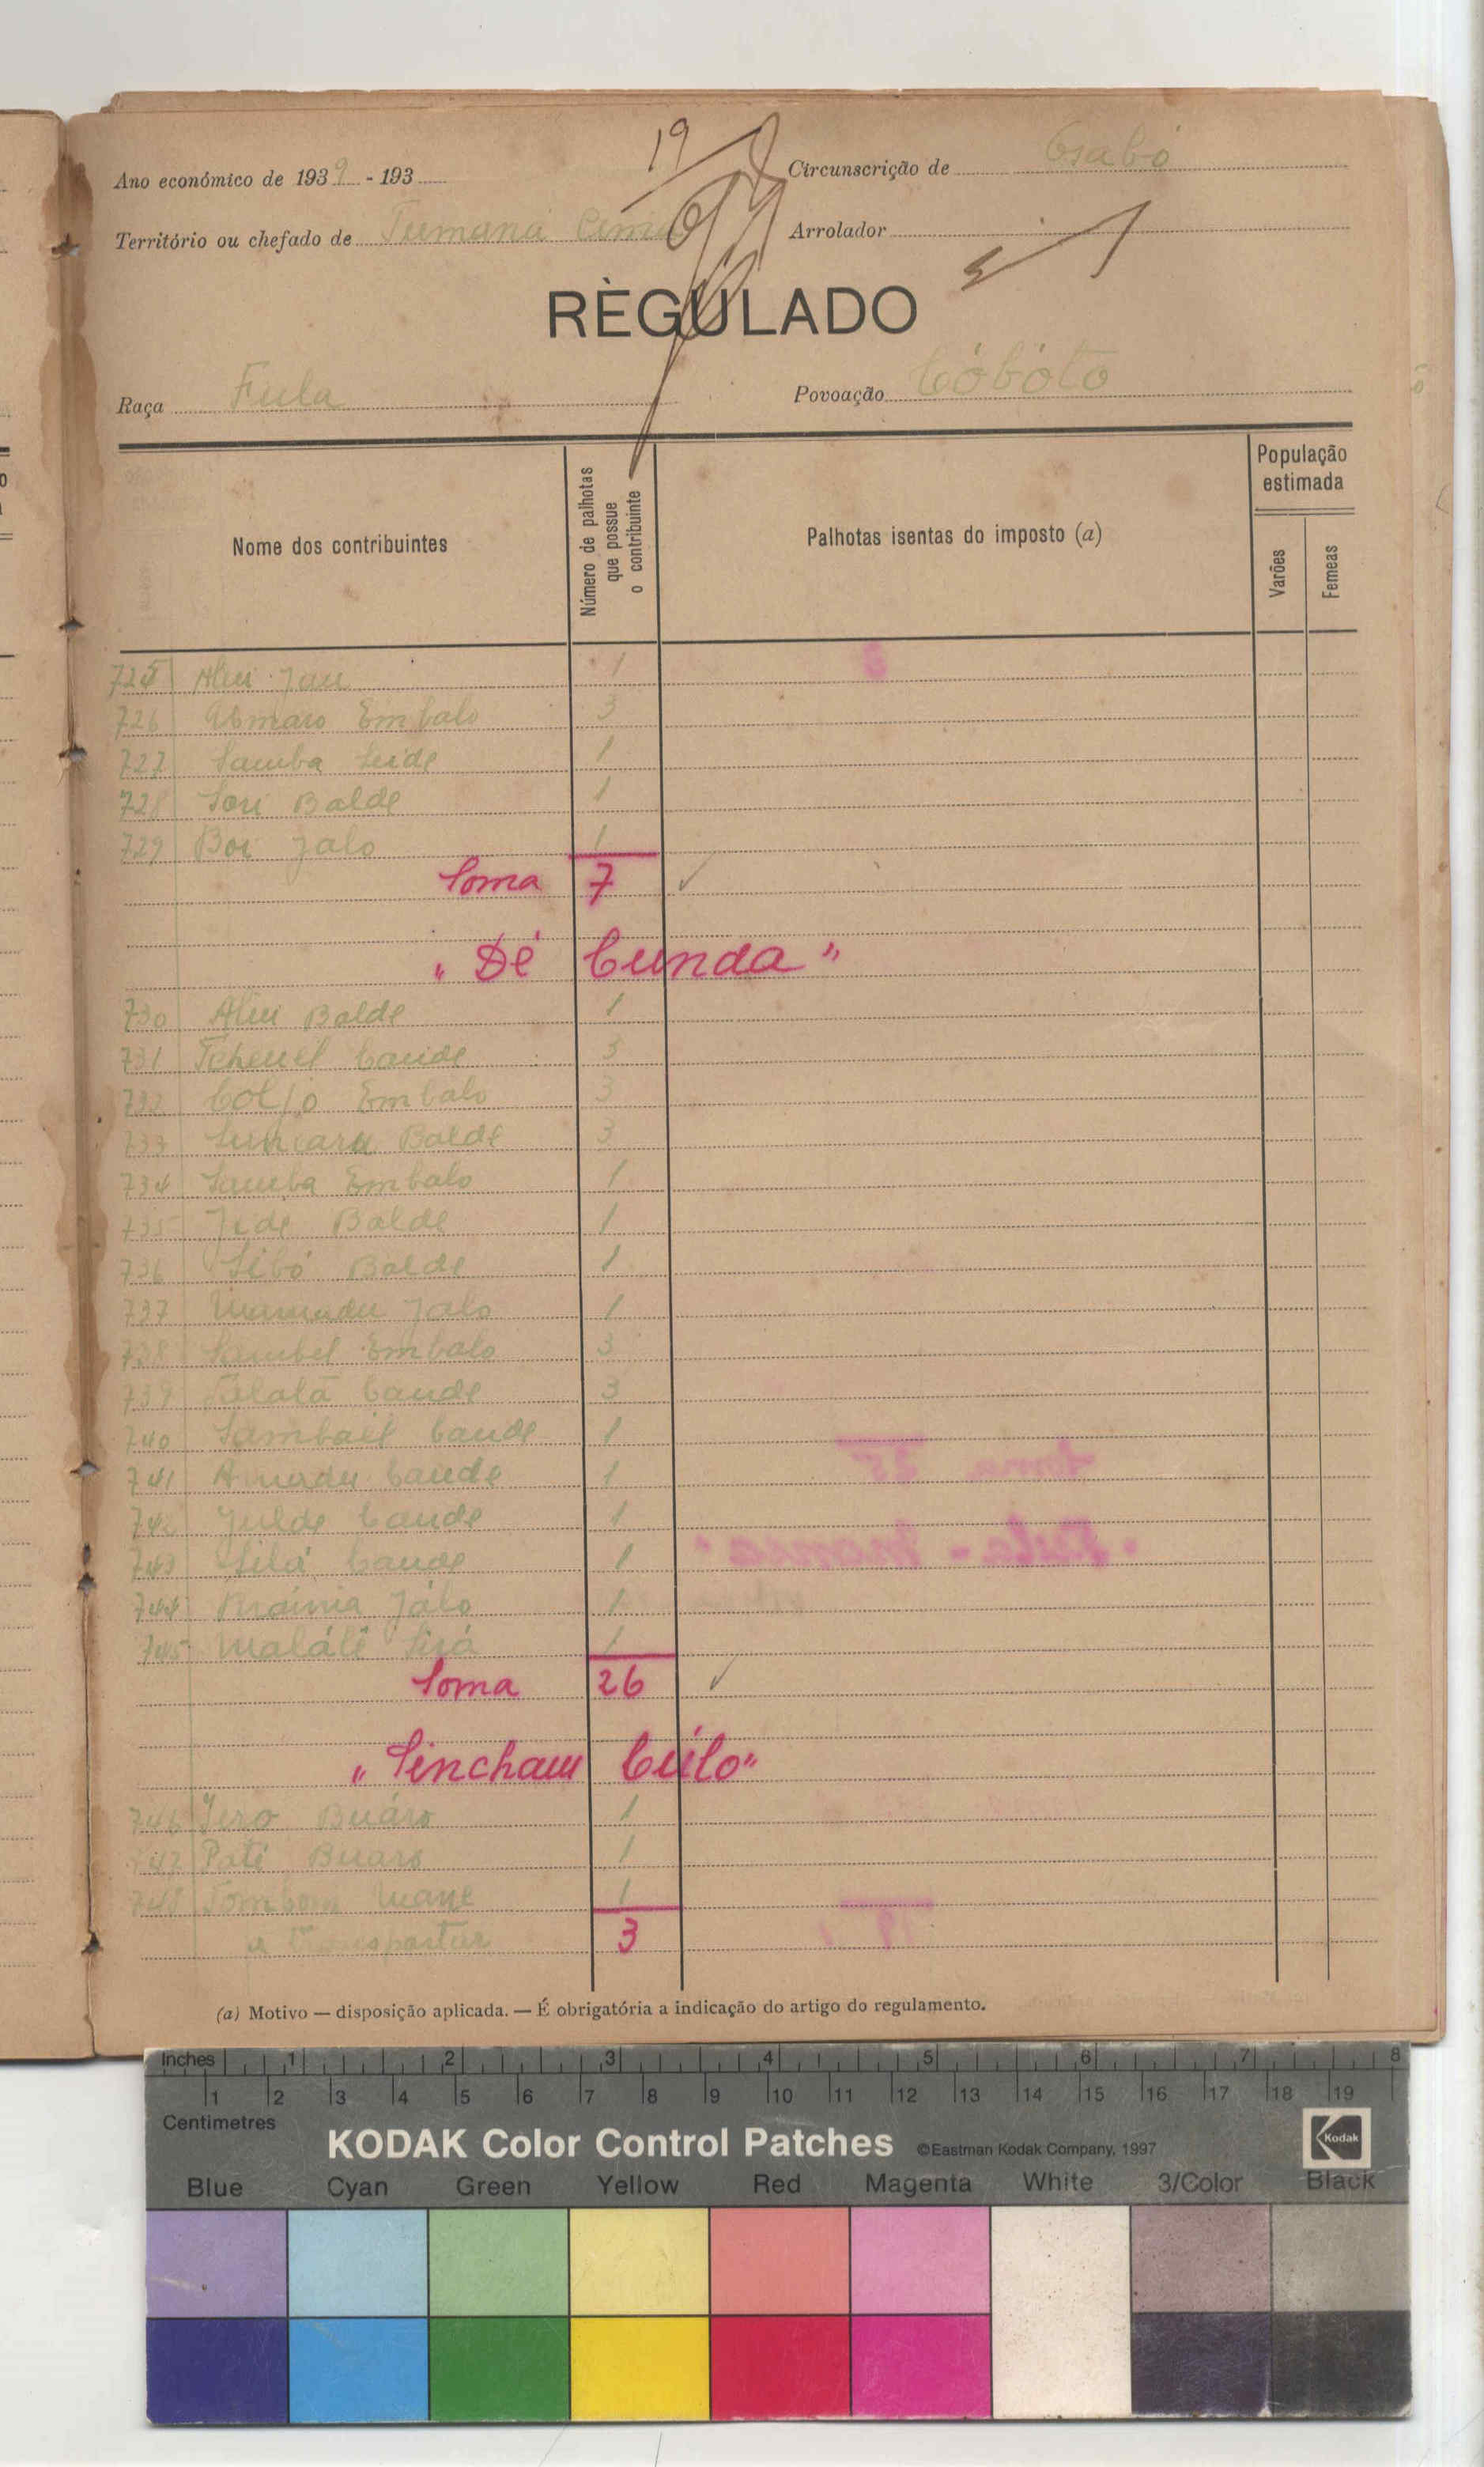 19
Ano económico de 1939 - 193
Circunscrição de Gabó
Território ou chefado de Tumaná Cima
Arrolador
RÈGULADO
Raça Fula
Povoação Cóbóto
Nome dos contribuintes
Número de palhotas que possue o contribuinte
Palhotas isentas do imposto (a)
População estimada
Varões
Femeas
725 Aliu Jau 1
726 Embalo 3
727 Samba Seide 1
728 Sori Balde 1
729 Boi Jalo 1
Soma 7
"Dé Cunda"
730 Aliu Balde 1
731 Tchenel Cande 3
732 Coljo Embalo 3
733 Balde 3
734 Samba Embalo 1
735 Jide Balde 1
736 Sibó Balde 1
737 Mamadu Jalo 1
738 Sambel Embalo 3
739 Cande 3
740 Sambail Cande 1
741 Amadu Cande 1
742 Julde Cande 1
743 Cande 1
744 Jálo 1
745 1
Soma 26
"Sincham Cúilo"
746 Jero Buáro 1
747 Paté Buaro 1
748 Tombom Mane 1
a Transportar 3
(a) Motivo — disposição aplicada. — É obrigatória a indicação do artigo do regulamento.
Inches 1 2 3 4 5 6 7 8
1 2 3 4 5 6 7 8 9 10 11 12 13 14 15 16 17 18 19
Centimetres
KODAK Color Control Patches ©Eastman Kodak Company, 1997 Kodak
Blue Cyan Green Yellow Red Magenta White 3/Color Black